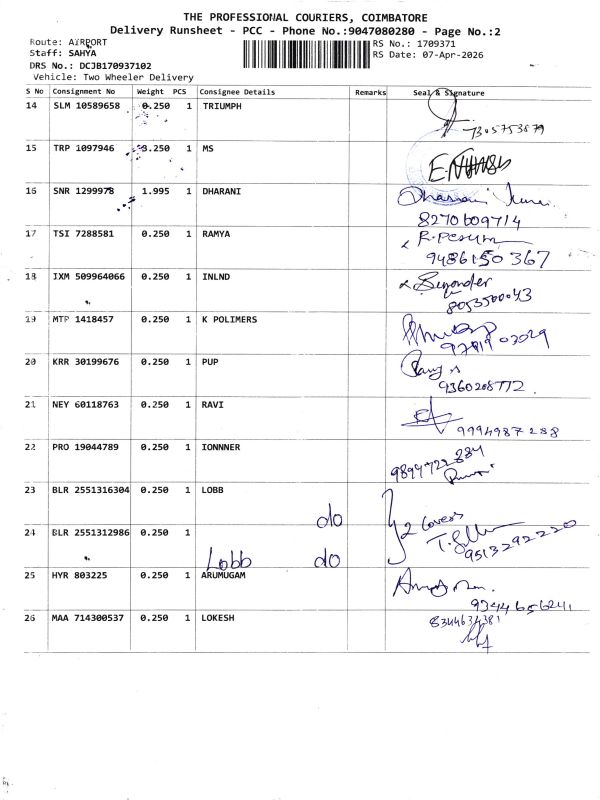 THE PROFESSIONAL COURIERS, COIMBATORE
Delivery Runsheet - PCC - Phone No.:9047080280 - Page No.:2
Route: AIRPORT
RS No.: 1709371
Staff: SAHYA
RS Date: 07-Apr-2026
DRS No.: DCJB170937102
Vehicle: Two Wheeler Delivery
S No Consignment No Weight PCS Consignee Details Remarks Seal & Signature
14 SLM 10589658 0.250 1 TRIUMPH
7305753879
15 TRP 1097946 3.250 1 MS
16 SNR 1299978 1.995 1 DHARANI
8270609714
17 TSI 7288581 0.250 1 RAMYA
9486150367
18 IXM 509964066 0.250 1 INLND
8053500043
19 MTP 1418457 0.250 1 K POLIMERS
20 KRR 30199676 0.250 1 PUP
9360208772
21 NEY 60118763 0.250 1 RAVI
9994987288
22 PRO 19044789 0.250 1 IONNNER
9894722884
23 BLR 2551316304 0.250 1 LOBB
do 2 Covers
24 BLR 2551312986 0.250 1
Lobb do 9513292220
25 HYR 803225 0.250 1 ARUMUGAM
9344656241
26 MAA 714300537 0.250 1 LOKESH
8344634381